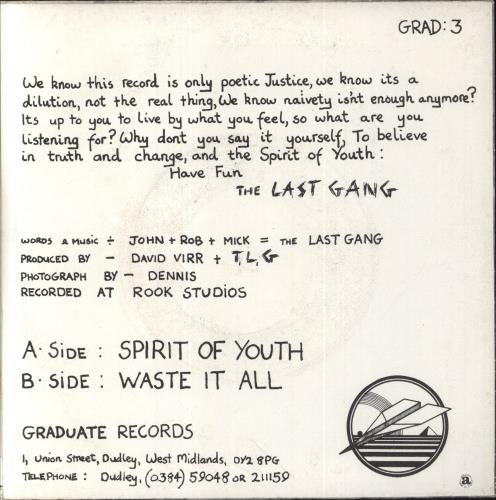 GRAD: 3
We know this record is only poetic Justice, we know its a
dilution, not the real thing, We know naivety isn't enough anymore?
Its up to you to live by what you feel, so what are you
listening for? Why dont you say it yourself, To believe
in truth and change, and the Spirit of Youth:
Have Fun
THE LAST GANG
WORDS & MUSIC ÷ JOHN + ROB + MICK = THE LAST GANG
PRODUCED BY - DAVID VIRR + T.L.G
PHOTOGRAPH BY - DENNIS
RECORDED AT ROOK STUDIOS
A·SIDE : SPIRIT OF YOUTH
B·SIDE : WASTE IT ALL
GRADUATE RECORDS
1, Union Street, Dudley, West Midlands, DY2 8PG
TELEPHONE : Dudley, (0384) 59048 OR 211159
a